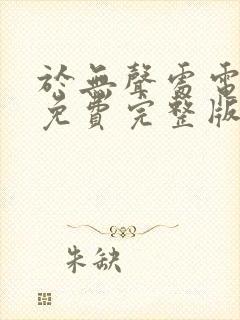 於無聲雷電
免費完整版
朱缺